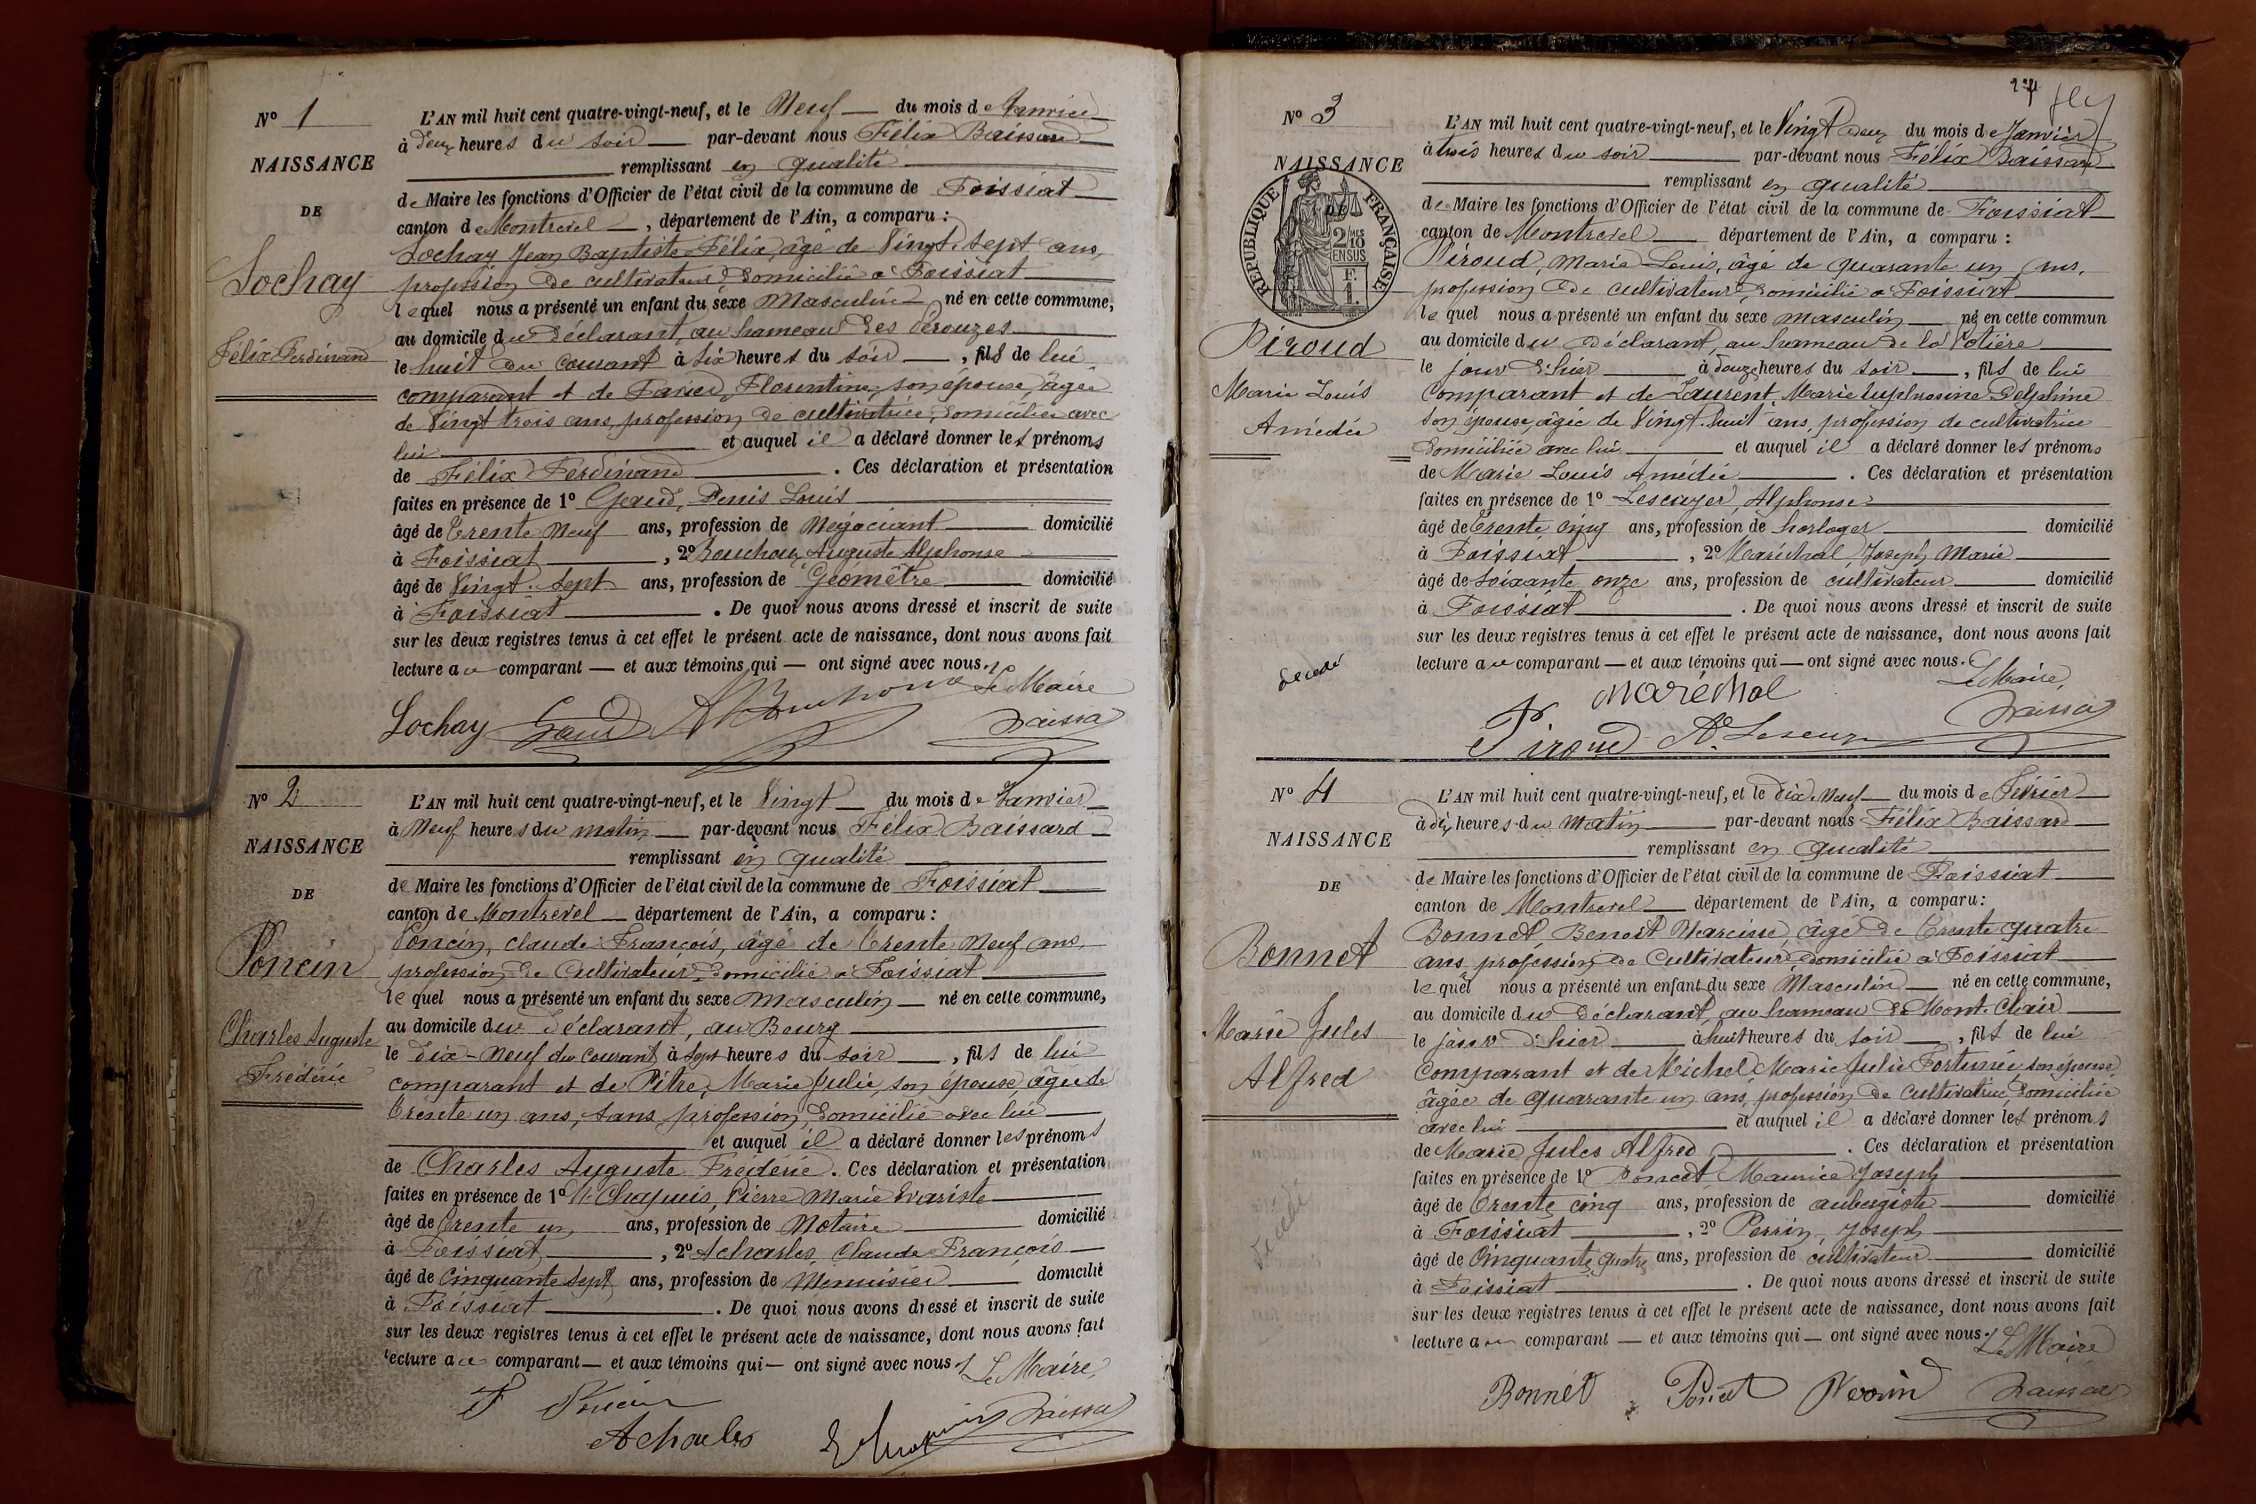 Nº 1
NAISSANCE
DE
Lochay
Félix Ferdinand
L'AN mil huit cent quatre-vingt-neuf, et le Neuf du mois de Janvier
à deux heures du soir par-devant nous Félix Baissard
remplissant en qualité
de Maire les fonctions d'Officier de l'état civil de la commune de Foissiat
canton de Montrevel, département de l'Ain, a comparu :
Lochay Jean Baptiste Félix, âgé de Vingt-sept ans,
profession de cultivateur, domicilié à Foissiat
lequel nous a présenté un enfant du sexe Masculin né en cette commune,
au domicile du déclarant, au hameau des
le huit du courant à six heures du soir, fils de lui
comparant et de Florentine, son épouse, âgée
de Vingt trois ans, profession de cultivatrice, domiciliée avec
lui et auquel il a déclaré donner les prénoms
de Félix Ferdinand. Ces déclaration et présentation
faites en présence de 1º Geand, Denis Louis
âgé de Trente Neuf ans, profession de Négociant domicilié
à Foissiat, 2º Bouchoux Auguste Alphonse
âgé de Vingt-sept ans, profession de Géomètre domicilié
à Foissiat. De quoi nous avons dressé et inscrit de suite
sur les deux registres tenus à cet effet le présent acte de naissance, dont nous avons fait
lecture au comparant — et aux témoins qui — ont signé avec nous.
Le Maire
Lochay
Nº 2
NAISSANCE
DE
Poncin
Charles Auguste
Frédéric
L'AN mil huit cent quatre-vingt-neuf, et le Vingt du mois de Janvier
à Neuf heures du matin par-devant nous Félix Baissard
remplissant en qualité
de Maire les fonctions d'Officier de l'état civil de la commune de Foissiat
canton de Montrevel département de l'Ain, a comparu :
Poncin, Claude François, âgé de Trente Neuf ans,
profession de Cultivateur, domicilié à Foissiat
lequel nous a présenté un enfant du sexe masculin né en cette commune,
au domicile du déclarant, au Bourg
le dix-neuf du courant à sept heures du soir, fils de lui
comparant et de Pitre, Marie Julie, son épouse, âgée de
Trente un ans, sans profession, domicilié avec lui
et auquel il a déclaré donner les prénoms
de Charles Auguste Frédéric. Ces déclaration et présentation
faites en présence de 1º Chapuis, Pierre Marie Evariste
âgé de Trente un ans, profession de Notaire domicilié
à Foissiat, 2º Acharles, Claude François
âgé de Cinquante sept ans, profession de Menuisier domicilié
à Foissiat. De quoi nous avons dressé et inscrit de suite
sur les deux registres tenus à cet effet le présent acte de naissance, dont nous avons fait
lecture au comparant — et aux témoins qui — ont signé avec nous.
Le Maire,
Poncin
Acharles
Nº 3
NAISSANCE
DE
RÉPUBLIQUE FRANÇAISE
Piroud
Marie Louis
Amédée
L'AN mil huit cent quatre-vingt-neuf, et le Vingt deux du mois de Janvier
à trois heures du soir par-devant nous Félix Baissard
remplissant en qualité
de Maire les fonctions d'Officier de l'état civil de la commune de Foissiat
canton de Montrevel département de l'Ain, a comparu :
Piroud, Marie Louis, âgé de quarante un ans,
profession de cultivateur, domicilié à Foissiat
lequel nous a présenté un enfant du sexe masculin né en cette commun
au domicile du déclarant, au hameau de la Potière
le jour d'hier à douze heures du soir, fils de lui
comparant et de Laurent, Marie Euphrosine Delphine
son épouse, âgée de Vingt-huit ans, profession de cultivatrice
domiciliée avec lui et auquel il a déclaré donner les prénoms
de Marie Louis Amédée. Ces déclaration et présentation
faites en présence de 1º Lescuyer, Alphonse
âgé de Trente cinq ans, profession de horloger domicilié
à Foissiat, 2º Maréchal, Joseph Marie
âgé de soixante onze ans, profession de cultivateur domicilié
à Foissiat. De quoi nous avons dressé et inscrit de suite
sur les deux registres tenus à cet effet le présent acte de naissance, dont nous avons fait
lecture au comparant — et aux témoins qui — ont signé avec nous.
décédé
Le Maire,
maréchal
Piroud
Nº 4
NAISSANCE
DE
Bonnet
Marie Jules
Alfred
L'AN mil huit cent quatre-vingt-neuf, et le dix-Neuf du mois de Février
à dix heures du Matin par-devant nous Félix Baissard
remplissant en qualité
de Maire les fonctions d'Officier de l'état civil de la commune de Foissiat
canton de Montrevel département de l'Ain, a comparu :
Bonnet, Benoit Narcisse, âgé de Trente quatre
ans, profession de Cultivateur, domicilié à Foissiat
lequel nous a présenté un enfant du sexe Masculin né en cette commune,
au domicile du déclarant, au hameau de Mont-Clair
le jour d'hier à huit heures du soir, fils de lui
Comparant et de Michel Marie Julie Fortunée, son épouse
âgée de quarante un ans, profession de cultivatrice, domiciliée
avec lui et auquel il a déclaré donner les prénoms
de Marie Jules Alfred. Ces déclaration et présentation
faites en présence de 1º Poncet, Maurice Joseph
âgé de Trente cinq ans, profession de aubergiste domicilié
à Foissiat, 2º Perrin, Joseph
âgé de Cinquante quatre ans, profession de cultivateur domicilié
à Foissiat. De quoi nous avons dressé et inscrit de suite
sur les deux registres tenus à cet effet le présent acte de naissance, dont nous avons fait
lecture au comparant — et aux témoins qui — ont signé avec nous.
décédé
Le Maire
Bonnet Poncet Perrin